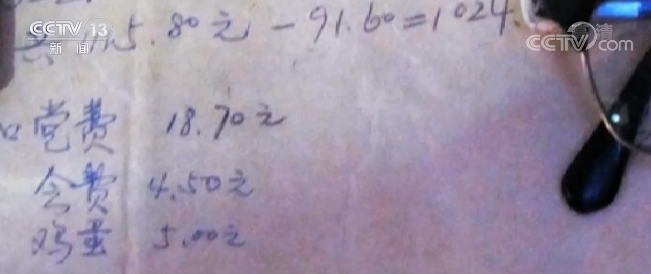 CCTV 13
新闻
CCTV.com
共1115.80元-91.60=1024.
党费 18.70元
会费 4.50元
鸡蛋 5.00元